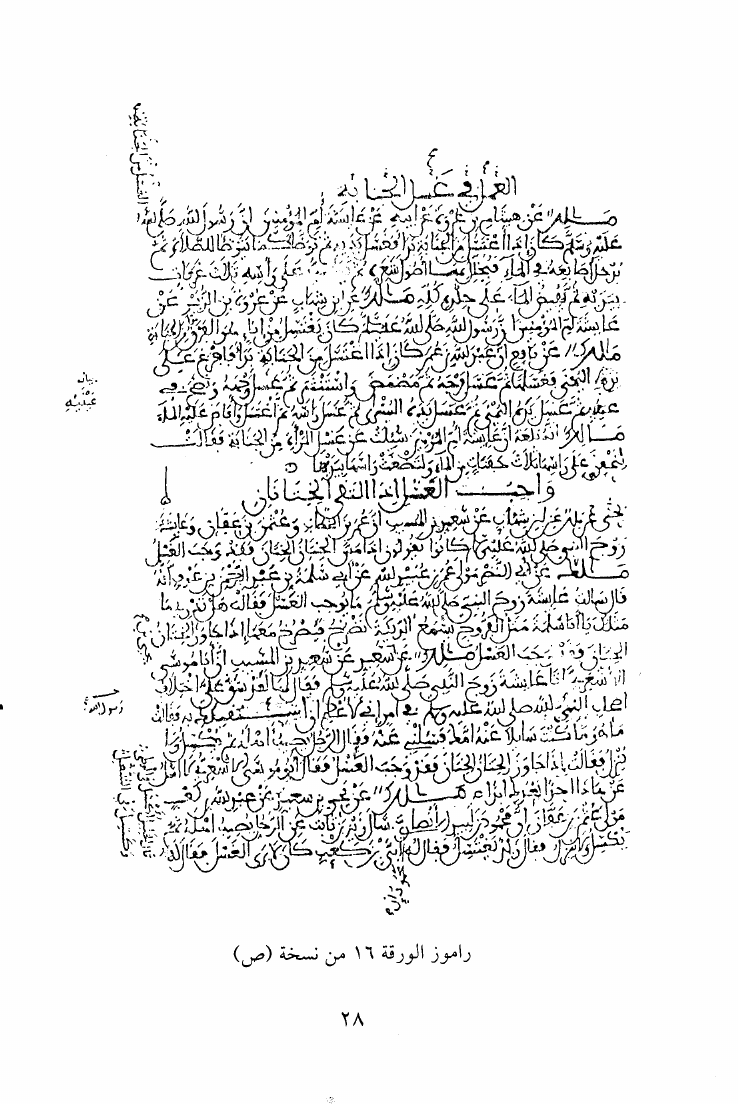 العمل في غسل الجنابة
مالك عن هشام بن عروة عن أبيه عن عائشة أم المؤمنين أن رسول الله صلى الله
عليه وسلم كان إذا اغتسل من الجنابة بدأ فغسل يديه ثم توضأ كما يتوضأ للصلاة ثم
يدخل أصابعه في الماء فيخلل بها أصول شعره ثم على رأسه ثلاث غرفات
بيديه ثم يفيض الماء على جلده كله مالك عن ابن شهاب عن عروة بن الزبير عن
عائشة أم المؤمنين أن رسول الله صلى الله عليه كان يغتسل من إناء هو الفرق من الجنابة
مالك عن نافع أن عبد الله بن عمر كان إذا اغتسل من الجنابة بدأ فأفرغ على
يده اليمنى فغسلها ثم غسل فرجه ثم مضمض واستنثر ثم غسل وجهه ونضح في
عينيه ثم غسل يده اليمنى ثم غسل يده اليسرى ثم غسل رأسه ثم اغتسل وأفاض عليه الماء
مالك أنه بلغه أن عائشة أم المؤمنين سئلت عن غسل المرأة من الجنابة فقالت
لتحفن على رأسها ثلاث حفنات من الماء ولتضغث رأسها بيديها
واجب الغسل إذا التقى الختانان
يحيى عن مالك عن ابن شهاب عن سعيد بن المسيب أن عمر بن الخطاب وعثمن بن عفان وعائشة
زوج النبي صلى الله عليه كانوا يقولون إذا مس الختان الختان فقد وجب الغسل
مالك عن أبي النضر مولى عمر بن عبيد الله عن أبي سلمة بن عبد الرحمن بن عوف أنه
قال سألت عائشة زوج النبي صلى الله عليه وسلم ما يوجب الغسل فقالت هل تدري ما
مثلك يا أبا سلمة مثل الفروج يسمع الديكة تصرخ فيصرخ معها إذا جاوز الختان
الختان فقد وجب الغسل مالك عن يحيى بن سعيد عن سعيد بن المسيب أن أبا موسى
الأشعري أتى عائشة زوج النبي صلى الله عليه وسلم فقال لها لقد شق علي اختلاف
أصحاب النبي صلى الله عليه وسلم في أمر إني لأعظم أن أستقبلك به فقالت
ما هو ما كنت سائلا عنه أمك فسلني عنه فقال الرجل يصيب أهله ثم يكسل ولا
ينزل فقالت إذا جاوز الختان الختان فقد وجب الغسل فقال أبو موسى الأشعري لا أسأل
عن هذا أحدا بعدك أبدا مالك عن يحيى بن سعيد عن عبد الله بن كعب
مولى عثمن بن عفان أن محمود بن لبيد الأنصاري سأل زيد بن ثابت عن الرجل يصيب أهله ثم
يكسل ولا ينزل فقال زيد يغتسل فقال له محمود إن أبي بن كعب كان لا يرى الغسل فقال له
عينيه
رسول الله
راموز الورقة ١٦ من نسخة (ص)
٢٨